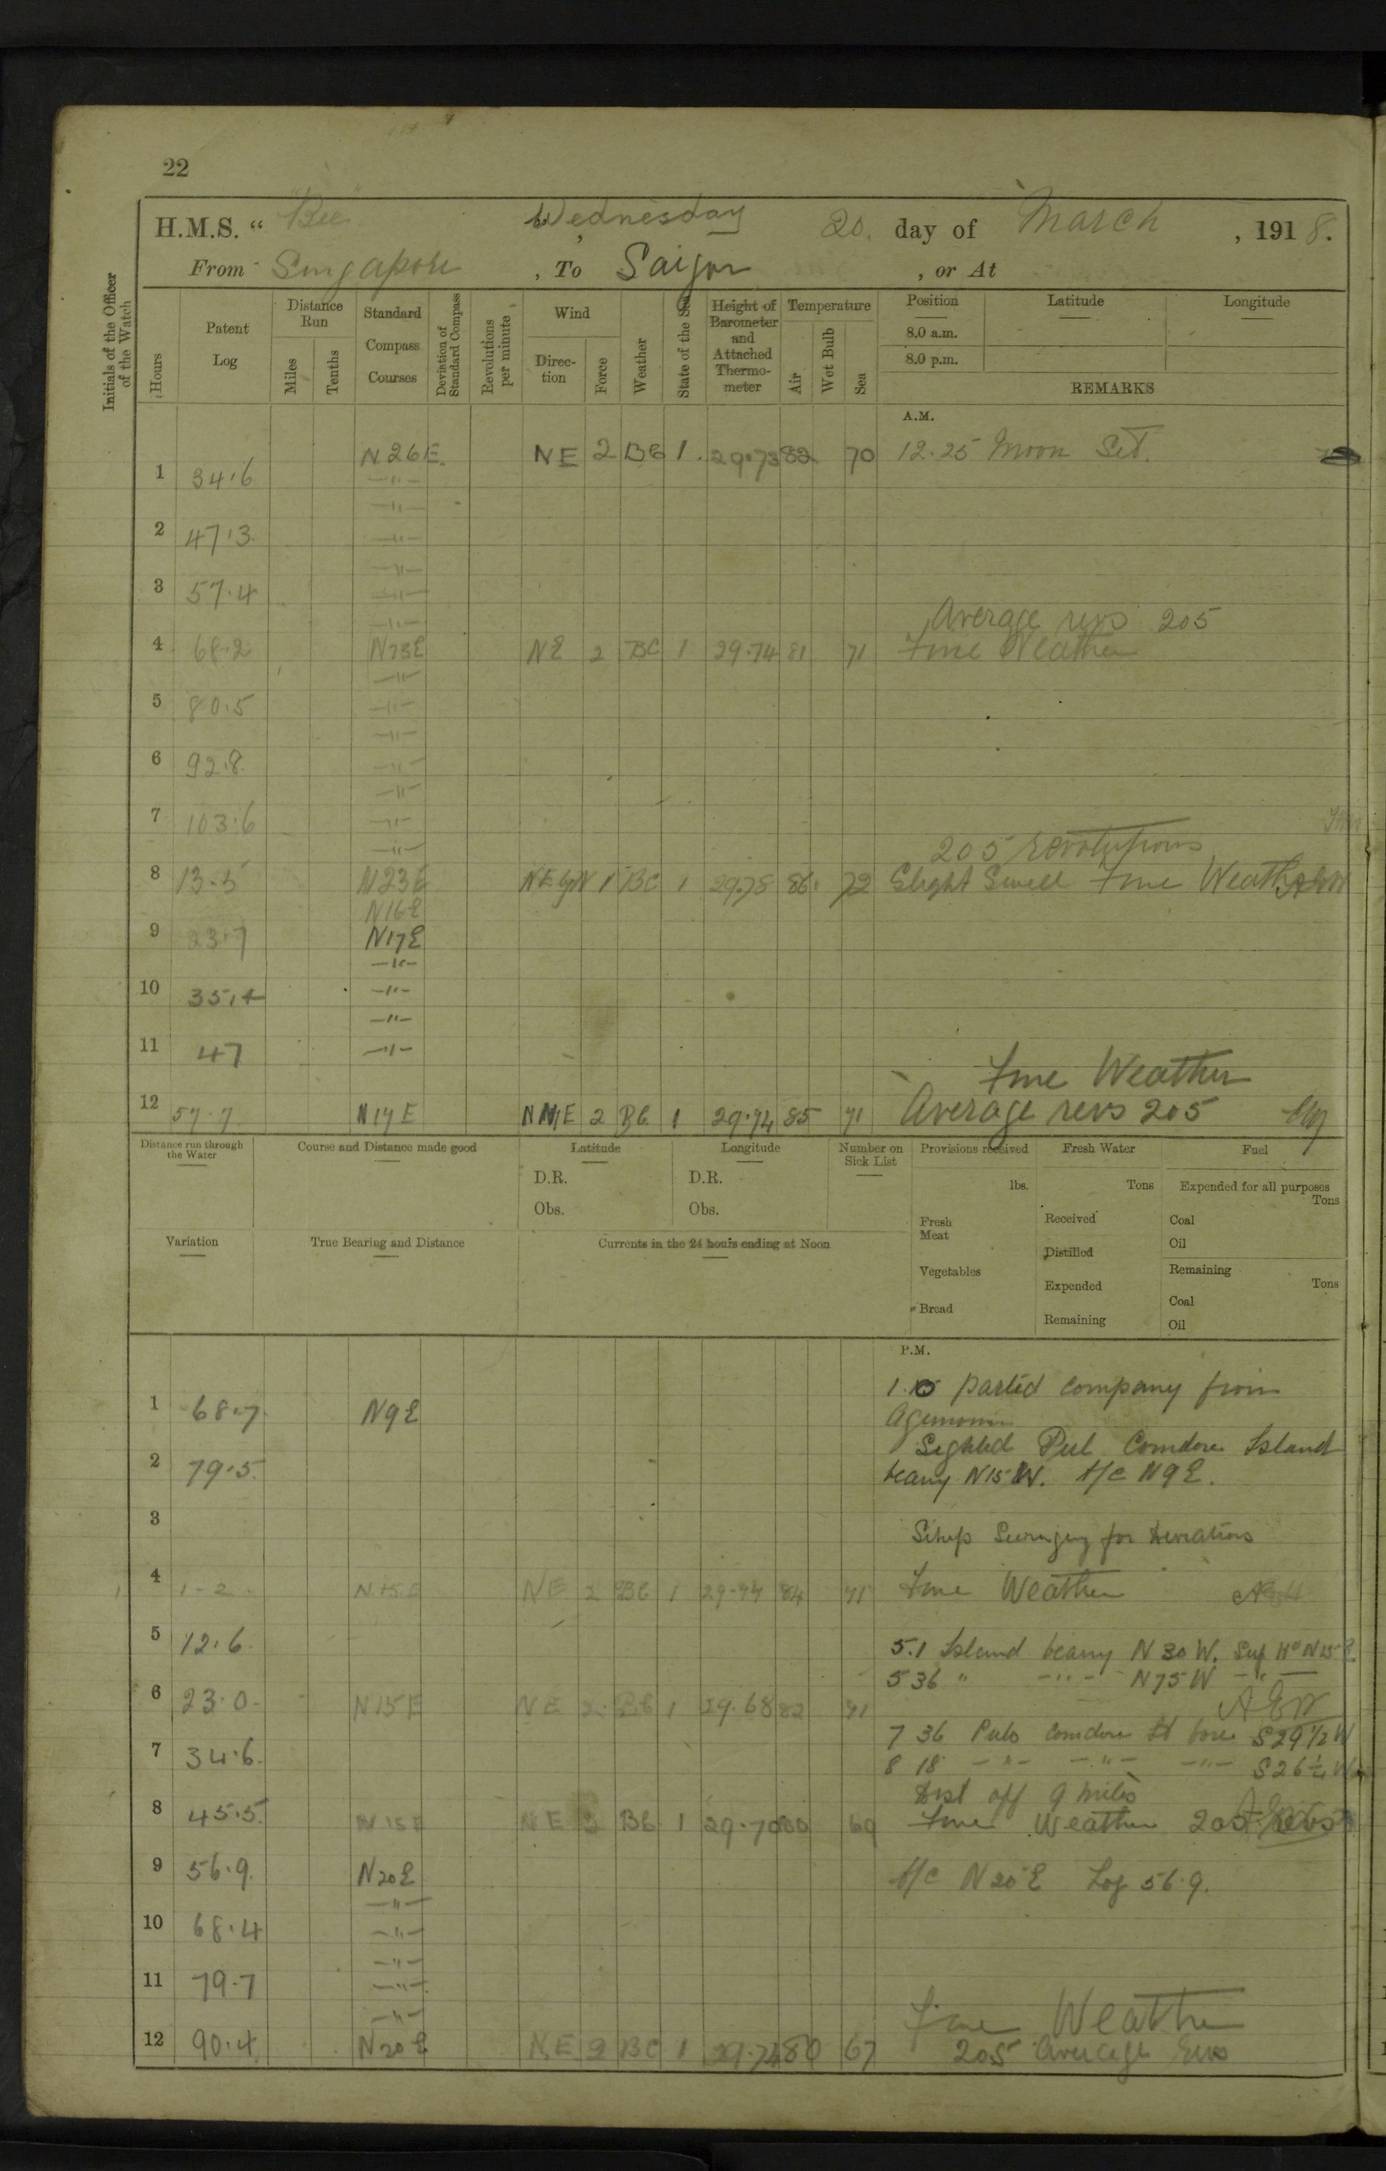 22
H.M.S. "Bee" Wednesday 20. day of March, 1918.
From Singapore, To Saigon, or At
Initials of the Officer of the Watch
Hours
Patent Log
Distance Run
Miles
Tenths
Standard Compass Courses
Deviation of Standard Compass
Revolutions per minute
Wind
Direction
Force
Weather
State of the Sea
Height of Barometer and Attached Thermometer
Temperature
Air
Wet Bulb
Sea
Position Latitude Longitude
8.0 a.m.
8.0 p.m.
REMARKS
A.M.
N26E. NE 2 BC 1. 29.73 82 70 12.25 Moon Set.
1 34.6 -"-
-"-
2 47.3 -"-
-"-
3 57.4 -"-
-"- Average revs 205
4 68.2 N23E NE 2 BC 1 29.74 81 71 Fine Weather
-"-
5 80.5 -"-
-"-
6 92.8 -"-
-"-
7 103.6 -"-
-"- 205 revolutions
8 13.5 N23E NEbyN 1 BC 1 29.78 86 72 Slight Swell Fine Weather
N16E
9 23.7 N17E
-"-
10 35.4 -"-
-"-
11 47 -"-
Fine Weather
12 57.7 N17E NNE 2 BC 1 29.74 85 71 Average revs 205
Distance run through the Water
Course and Distance made good
Latitude
D.R.
Obs.
Longitude
D.R.
Obs.
Number on Sick List
Provisions received
lbs.
Fresh Meat
Vegetables
Bread
Fresh Water
Tons
Received
Distilled
Expended
Remaining
Fuel
Expended for all purposes
Tons
Coal
Oil
Remaining
Tons
Coal
Oil
Variation
True Bearing and Distance
Currents in the 24 hours ending at Noon
P.M.
parted company from
1 68.7 N9E
Sighted Pul Comdore Island
2 79.5 bearg N15W. A/c N9E.
3
Ship Swinging for Deviations
4 1-2 N15E NE 2 BC 1 29.74 84 71 Fine Weather
5 12.6 5.1 Island bearg N30W. N15E
5 36 " -"- N75W -"-
6 23.0 N15E NE 2 BC 1 29.68 82 71 AEW
7 36 Pulo comdore Lt bore S29½W
7 34.6
8 18 -"- -"- -"- S26¼W
Dist off 9 miles
8 45.5 N15E NE 3 BC 1 29.70 80 69 Fine Weather 205 revs
9 56.9. N20E A/c N20E Log 56.9.
-"-
10 68.4 -"-
-"-
11 79.7 -"-
-"- Fine Weather
12 90.4 N20E NE 2 BC 1 29.74 80 67 205 average revs